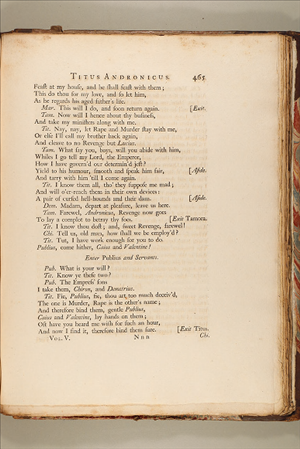 TITUS ANDRONICUS. 465
Feast at my house, and he shall feast with them;
This do thou for my love, and so let him,
As he regards his aged father's life.
Mar. This will I do, and soon return again. [Exit.
Tam. Now will I hence about thy business,
And take my ministers along with me.
Tit. Nay, nay, let Rape and Murder stay with me,
Or else I'll call my brother back again,
And cleave to no Revenge but Lucius.
Tam. What say you, boys, will you abide with him,
Whiles I go tell my Lord, the Emperor,
How I have govern'd our determin'd jest?
Yield to his humour, smooth and speak him fair, [Aside.
And tarry with him 'till I come again.
Tit. I know them all, tho' they suppose me mad;
And will o'er-reach them in their own devices:
A pair of cursed hell-hounds and their dam. [Aside.
Dem. Madam, depart at pleasure, leave us here.
Tam. Farewel, Andronicus, Revenge now goes
To lay a complot to betray thy foes. [Exit Tamora.
Tit. I know thou dost; and, sweet Revenge, farewel!
Chi. Tell us, old man, how shall we be employ'd?
Tit. Tut, I have work enough for you to do.
Publius, come hither, Caius and Valentine!
Enter Publius and Servants.
Pub. What is your will?
Tit. Know ye these two?
Pub. The Empress' sons
I take them, Chiron, and Demetrius.
Tit. Fie, Publius, fie, thou art too much deceiv'd,
The one is Murder, Rape is the other's name;
And therefore bind them, gentle Publius,
Caius and Valentine, lay hands on them;
Oft have you heard me wish for such an hour,
And now I find it, therefore bind them sure. [Exit Titus.
VOL. V. Nnn Chi.